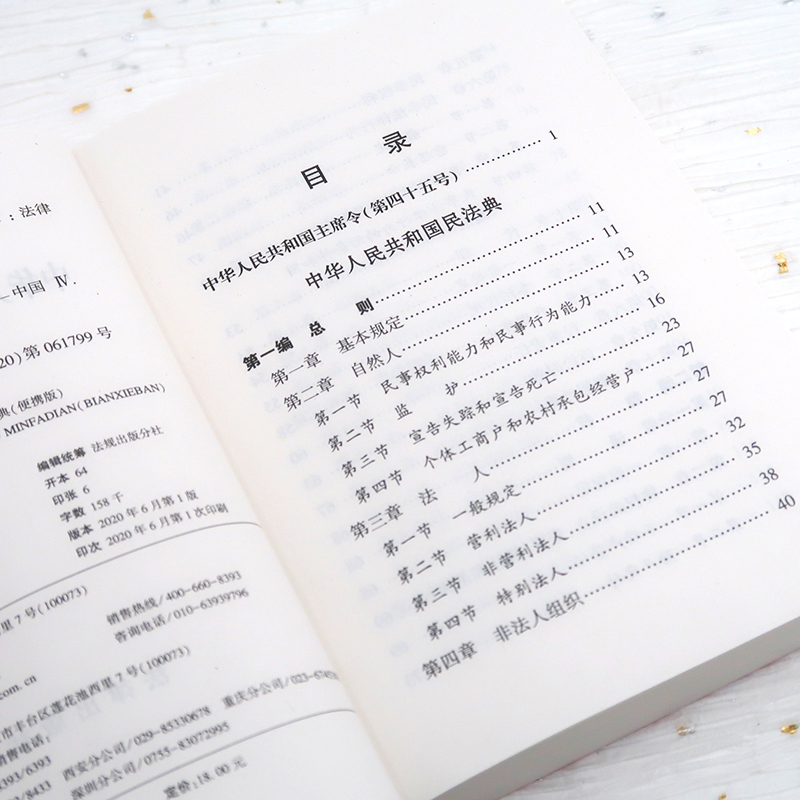 :法律
—中国 Ⅳ.
20)第 061799 号
典(便携版)
MINFADIAN(BIANXIEBAN)
编辑统筹 法规出版分社
开本 64
印张 6
字数 158 千
版本 2020 年 6 月第 1 版
印次 2020 年 6 月第 1 次印刷
里 7 号(100073)
销售热线/400-660-8393
咨询电话/010-63939796
com.cn
市丰台区莲花池西里 7 号(100073)
销售电话:
8393/6393 西安分公司/029-85330678 重庆分公司/023-
深圳分公司/0755-83072995
定价:18.00 元
目 录
中华人民共和国主席令(第四十五号) …… 1
中华人民共和国民法典
第一编 总 则 …… 11
第一章 基本规定 …… 11
第二章 自然人 …… 13
第一节 民事权利能力和民事行为能力 …… 13
第二节 监 护 …… 16
第三节 宣告失踪和宣告死亡 …… 23
第四节 个体工商户和农村承包经营户 …… 27
第三章 法 人 …… 27
第一节 一般规定 …… 27
第二节 营利法人 …… 32
第三节 非营利法人 …… 35
第四节 特别法人 …… 38
第四章 非法人组织 …… 40